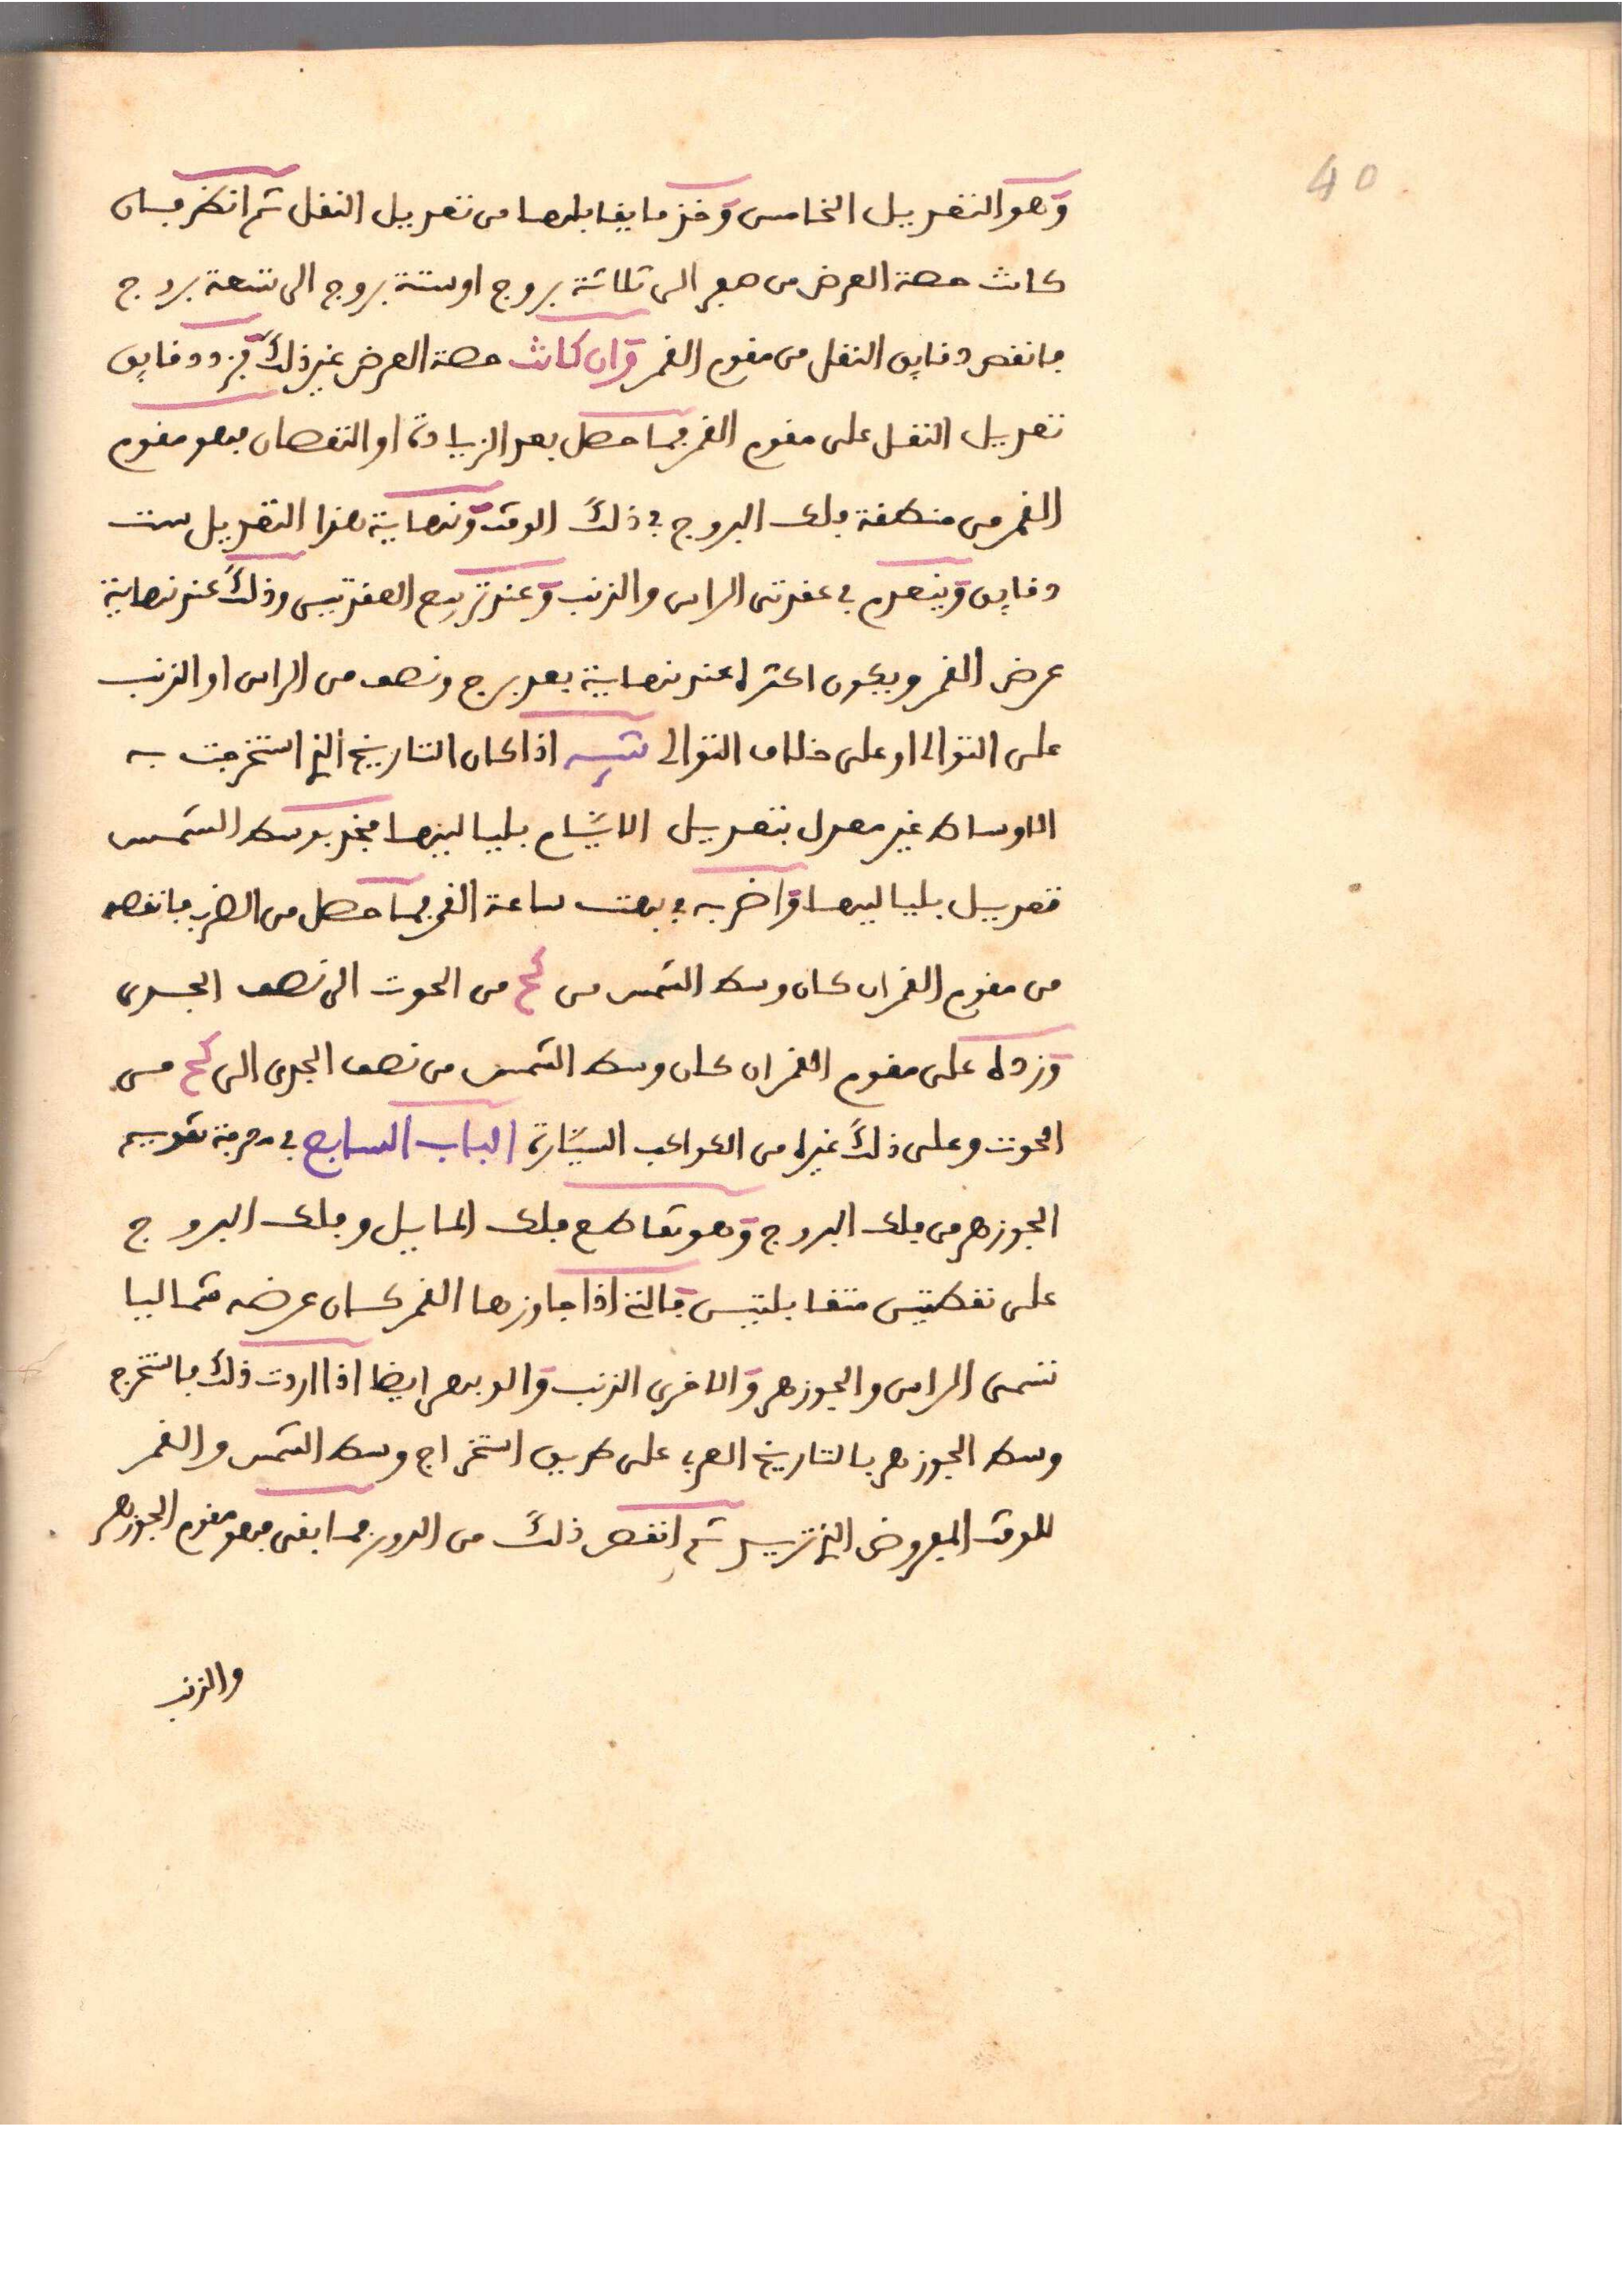 40
وهو التعديل الخامس وخذ ما يقابلها من تعديل النقل ثم انظر فان
كانت حصة العرض من صفر الى ثلاثة بروج او ستة بروج الى تسعة بروج
فانقص دقايق النقل من مقوم القمر وان كانت حصة العرض غير ذلك فزد دقايق
تعديل النقل على مقوم القمر فما حصل بعد الزيادة او النقصان فهو مقوم
القمر من منطقة فلك البروج في ذلك الوقت ونهاية هذا التعديل ست
دقايق وينعدم في عقدتي الراس والذنب وعند تربيع العقدتين وذلك عند نهاية
عرض القمر ويكون اكثره عند نهاية بعد برج ونصف من الراس او الذنب
على التوالي او على خلاف التوالي تنبيه اذا كان التاريخ الذي استخرجت به
الاوساط غير معدل بتعديل الايام بلياليها فخذ بوسط الشمس
تعديل بلياليها واضربه في بهت ساعة القمر فما حصل من الضرب فانقصه
من مقوم القمر ان كان وسط الشمس من كح من الحوت الى نصف الجدي
وزده على مقوم القمر ان كان وسط الشمس من نصف الجدي الى كح من
الحوت وعلى ذلك غيره من الكواكب السيارة الباب السابع في معرفة تقويم
الجوزهر من فلك البروج وهو تقاطع فلك المايل وفلك البروج
على نقطتين متقابلتين فالتي اذا جاوزها القمر كان عرضه شماليا
تسمى الراس والجوزهر والاخرى الذنب والوبهر ايضا اذا اردت ذلك فاستخرج
وسط الجوزهر بالتاريخ العربي على طريق استخراج وسط الشمس والقمر
للوقت المفروض الذي تريد ثم انقص ذلك من الدور فما بقى فهو مقوم الجوزهر
والذنب